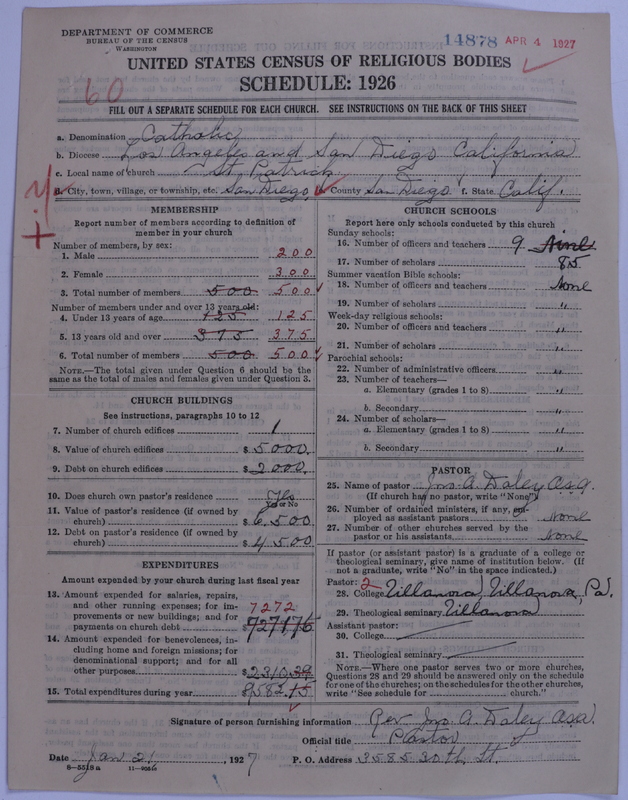 DEPARTMENT OF COMMERCE
BUREAU OF THE CENSUS
WASHINGTON
14878 APR 4 1927
UNITED STATES CENSUS OF RELIGIOUS BODIES
SCHEDULE: 1926
60
FILL OUT A SEPARATE SCHEDULE FOR EACH CHURCH. SEE INSTRUCTIONS ON THE BACK OF THIS SHEET
a. Denomination Catholic
b. Diocese Los Angeles and San Diego California
c. Local name of church St Patrick
City, town, village, or township, etc. San Diego, County San Diego f. State Calif.
MEMBERSHIP
Report number of members according to definition of
member in your church
Number of members, by sex:
1. Male 200
2. Female 300
3. Total number of members 500 500
Number of members under and over 13 years old:
4. Under 13 years of age 125 125
5. 13 years old and over 375 375
6. Total number of members 500 500
NOTE.—The total given under Question 6 should be the
same as the total of males and females given under Question 3.
CHURCH BUILDINGS
See instructions, paragraphs 10 to 12
7. Number of church edifices 1
8. Value of church edifices $5000.
9. Debt on church edifices $2000.
10. Does church own pastor's residence Yes
Yes or No
11. Value of pastor's residence (if owned by
church) $6500
12. Debt on pastor's residence (if owned by
church) $4500
EXPENDITURES
Amount expended by your church during last fiscal year
13. Amount expended for salaries, repairs,
and other running expenses; for im-
provements or new buildings; and for
payments on church debt 7272 727176
14. Amount expended for benevolences, in-
cluding home and foreign missions; for
denominational support; and for all
other purposes $2310.39
15. Total expenditures during year 9582.15
CHURCH SCHOOLS
Report here only schools conducted by this church
Sunday schools:
16. Number of officers and teachers 9 Nine
17. Number of scholars 85
Summer vacation Bible schools:
18. Number of officers and teachers None
19. Number of scholars "
Week-day religious schools:
20. Number of officers and teachers "
21. Number of scholars "
Parochial schools:
22. Number of administrative officers "
23. Number of teachers—
a. Elementary (grades 1 to 8) "
b. Secondary "
24. Number of scholars—
a. Elementary (grades 1 to 8) "
b. Secondary "
PASTOR
25. Name of pastor Jno. A. Daley O.S.A.
(If church has no pastor, write "None")
26. Number of ordained ministers, if any, em-
ployed as assistant pastors None
27. Number of other churches served by the
pastor or his assistants None
If pastor (or assistant pastor) is a graduate of a college or
theological seminary, give name of institution below. (If
not a graduate, write "No" in the space indicated.)
Pastor: 2
28. College Villanova, Villanova, Pa.
29. Theological seminary Villanova
Assistant pastor:
30. College
31. Theological seminary
NOTE.—Where one pastor serves two or more churches,
Questions 28 and 29 should be answered only on the schedule
for one of the churches; on the schedules for the other churches,
write "See schedule for church."
Signature of person furnishing information Rev Jno. A. Daley O.S.A.
Official title Pastor
Date Jan 21, 1927 P. O. Address 3585 30th St.
8—5518a